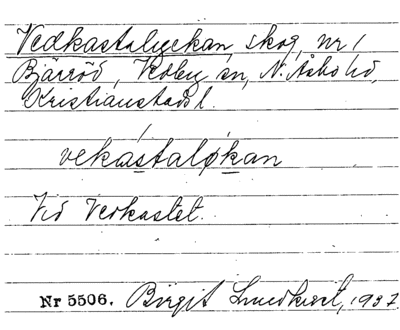 Vedkastalyckan, skog, nr 1
Bjärröd, Veby sn, N. Åsbo hd,
Kristianstads l.
vekastaløkan
Vid Vedkastet.
Nr 5506. Birgit Lundkvist, 1937